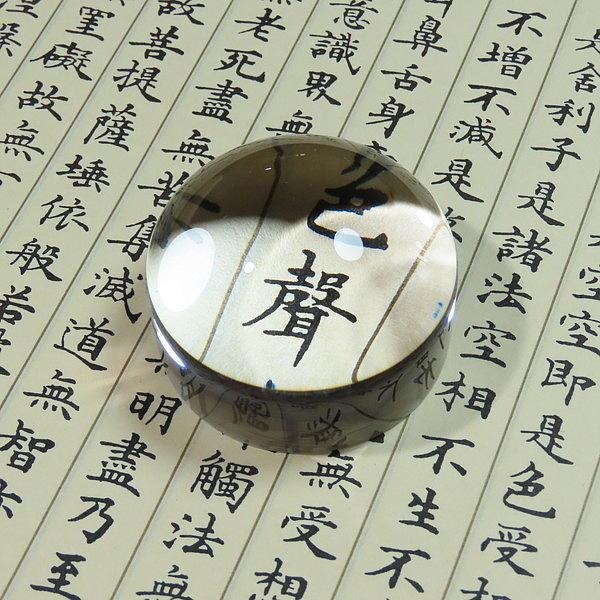 空空即是色受想
是舍利子是諸法空相不生不
不增不減是
無受想
鼻舌身
色聲
觸法無
意識界無
明盡乃至
無老死盡無苦集滅道無智亦
故菩提薩埵依般若
罣礙故無